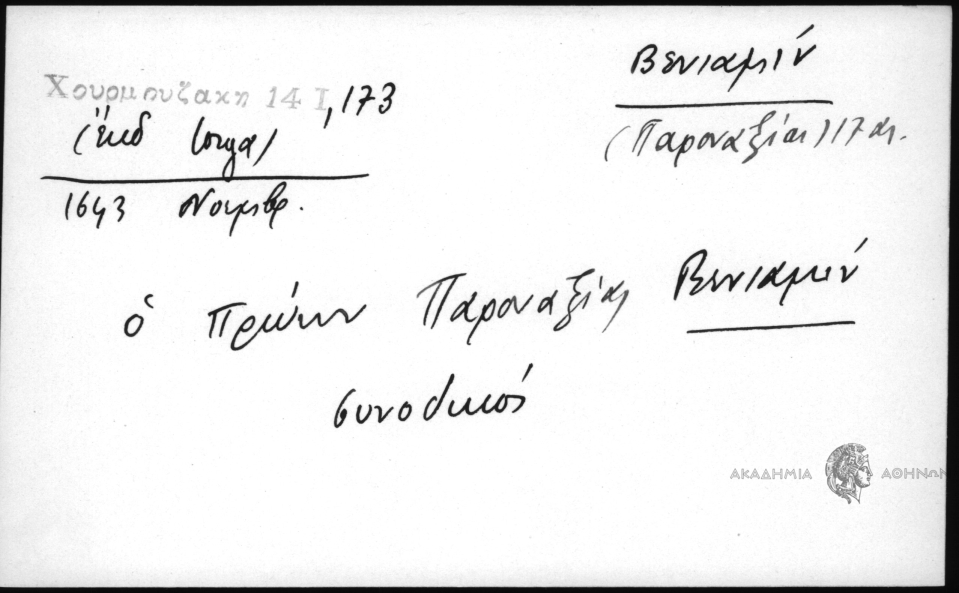 Βενιαμίν
(Παροναξίας) 17 αι.
Χουρμουζακη 14 I, 173
1643 Νοεμβρ.
ὁ πρώην Παροναξίας Βενιαμίν
συνοδικός
ΑΚΑΔΗΜΙΑ ΑΘΗΝΩΝ